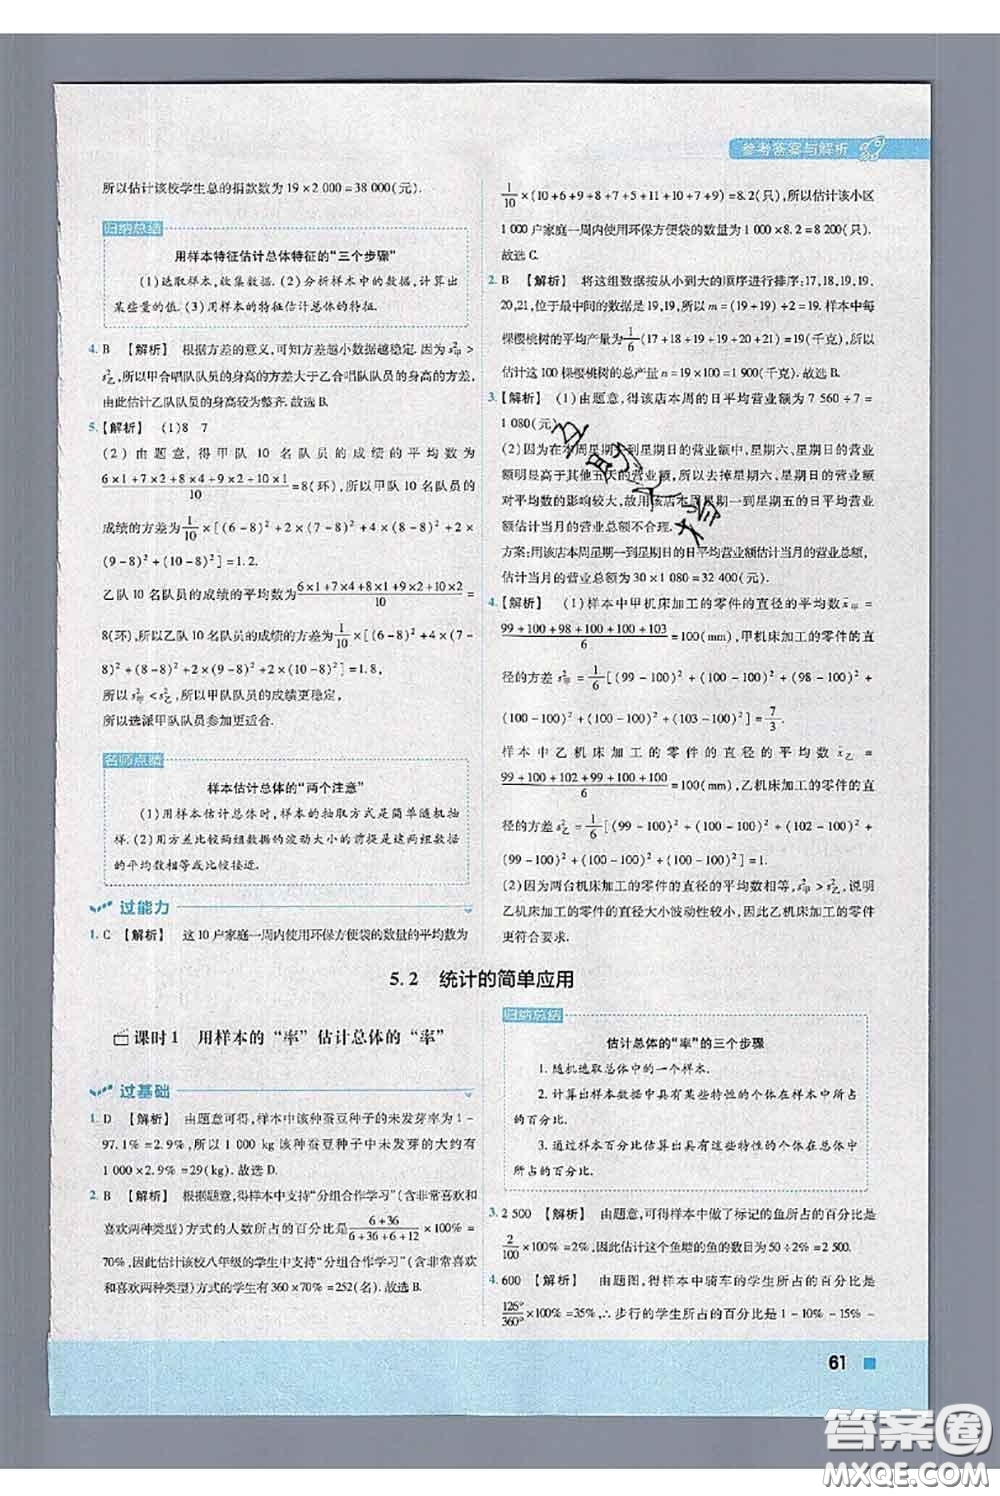 参考答案与解析
所以估计该校学生总的捐款数为 19 × 2 000 = 38 000(元).
归纳总结
用样本特征估计总体特征的“三个步骤”
(1)选取样本,收集数据.(2)分析样本中的数据,计算出
某些量的值.(3)用样本的特征估计总体的特征.
4. B 【解析】 根据方差的意义,可知方差越小数据越稳定.因为 s²甲 >
s²乙,所以甲合唱队队员的身高的方差大于乙合唱队队员的身高的方差,
由此估计乙队队员的身高较为整齐.故选 B.
5.【解析】 (1)8 7
(2) 由题意,得甲队 10 名队员的成绩的平均数为
(6×1+7×2+8×4+9×2+10×1)/10 = 8(环),所以甲队 10 名队员的
成绩的方差为 1/10 × [(6-8)² + 2×(7-8)² + 4×(8-8)² + 2×
(9-8)² + (10-8)²] = 1.2.
乙队 10 名队员的成绩的平均数为 (6×1+7×4+8×1+9×2+10×2)/10 =
8(环),所以乙队 10 名队员的成绩的方差为 1/10 × [(6-8)² + 4×(7-
8)² + (8-8)² + 2×(9-8)² + 2×(10-8)²] = 1.8,
所以 s²甲 < s²乙,所以甲队队员的成绩更稳定,
所以选派甲队队员参加更适合.
名师点睛
样本估计总体的“两个注意”
(1)用样本估计总体时,样本的抽取方式是简单随机抽
样.(2)用方差比较两组数据的波动大小的前提是这两组数据
的平均数相等或比较接近.
过能力
1. C 【解析】 这 10 户家庭一周内使用环保方便袋的数量的平均数为
1/10 × (10+6+9+8+7+5+11+10+7+9) = 8.2(只),所以估计该小区
1 000 户家庭一周内使用环保方便袋的数量为 1 000 × 8.2 = 8 200(只).
故选 C.
2. B 【解析】 将这组数据按从小到大的顺序进行排序:17,18,19,19,
20,21,位于最中间的数据是 19,19,所以 m = (19+19) ÷ 2 = 19. 样本中每
棵樱桃树的平均产量为 1/6 (17+18+19+19+20+21) = 19(千克),所以
估计这 100 棵樱桃树的总产量 n = 19 × 100 = 1 900(千克).故选 B.
3.【解析】 (1)由题意,得该店本周的日平均营业额为 7 560 ÷ 7 =
1 080(元).
(2)因为在本周星期一到星期日的营业额中,星期六、星期日的营业
额明显高于其他五天的营业额,所以去掉星期六、星期日的营业额
对平均数的影响较大,故用该店本周星期一到星期五的日平均营业
额估计当月的营业总额不合理.
方案:用该店本周星期一到星期日的日平均营业额估计当月的营业总额,
估计当月的营业总额为 30 × 1 080 = 32 400(元).
4.【解析】 (1)样本中甲机床加工的零件的直径的平均数 x̄甲 =
(99+100+98+100+100+103)/6 = 100(mm),甲机床加工的零件的直
径的方差 s²甲 = 1/6 [(99-100)² + (100-100)² + (98-100)² +
(100-100)² + (100-100)² + (103-100)²] = 7/3.
样本中乙机床加工的零件的直径的平均数 x̄乙 =
(99+100+102+99+100+100)/6 = 100(mm),乙机床加工的零件的直
径的方差 s²乙 = 1/6 [(99-100)² + (100-100)² + (102-100)² +
(99-100)² + (100-100)² + (100-100)²] = 1.
(2)因为两台机床加工的零件的直径的平均数相等,s²甲 > s²乙,说明
乙机床加工的零件的直径大小波动性较小,因此乙机床加工的零件
更符合要求.
5.2 统计的简单应用
课时1 用样本的“率”估计总体的“率”
过基础
1. D 【解析】 由题意可得,样本中该种蚕豆种子的未发芽率为 1 -
97.1% = 2.9%,所以 1 000 kg 该种蚕豆种子中未发芽的大约有
1 000 × 2.9% = 29(kg).故选 D.
2. B 【解析】 根据题意,得样本中支持“分组合作学习”(含非常喜欢和
喜欢两种类型)方式的人数所占的百分比为 (6+36)/(6+36+6+12) × 100% =
70%,因此估计该校八年级的学生中支持“分组合作学习”(含非常喜欢
和喜欢两种类型)方式的学生有 360 × 70% = 252(名).故选 B.
归纳总结
估计总体的“率”的三个步骤
1. 随机选取总体中的一个样本.
2. 计算出样本数据中具有某些特性的个体在样本中所占
的百分比.
3. 通过样本百分比估算出具有这些特性的个体在总体中
所占的百分比.
3. 2 500 【解析】 由题意,可得样本中做了标记的鱼所占的百分比是
2/100 × 100% = 2%,因此估计这个鱼塘的鱼的数量为 50 ÷ 2% = 2 500.
4. 600 【解析】 由题图,得样本中骑车的学生所占的百分比是
126°/360° × 100% = 35%,∴ 步行的学生所占的百分比是 1 - 10% - 15% -
61
答案圈
MXQE.COM